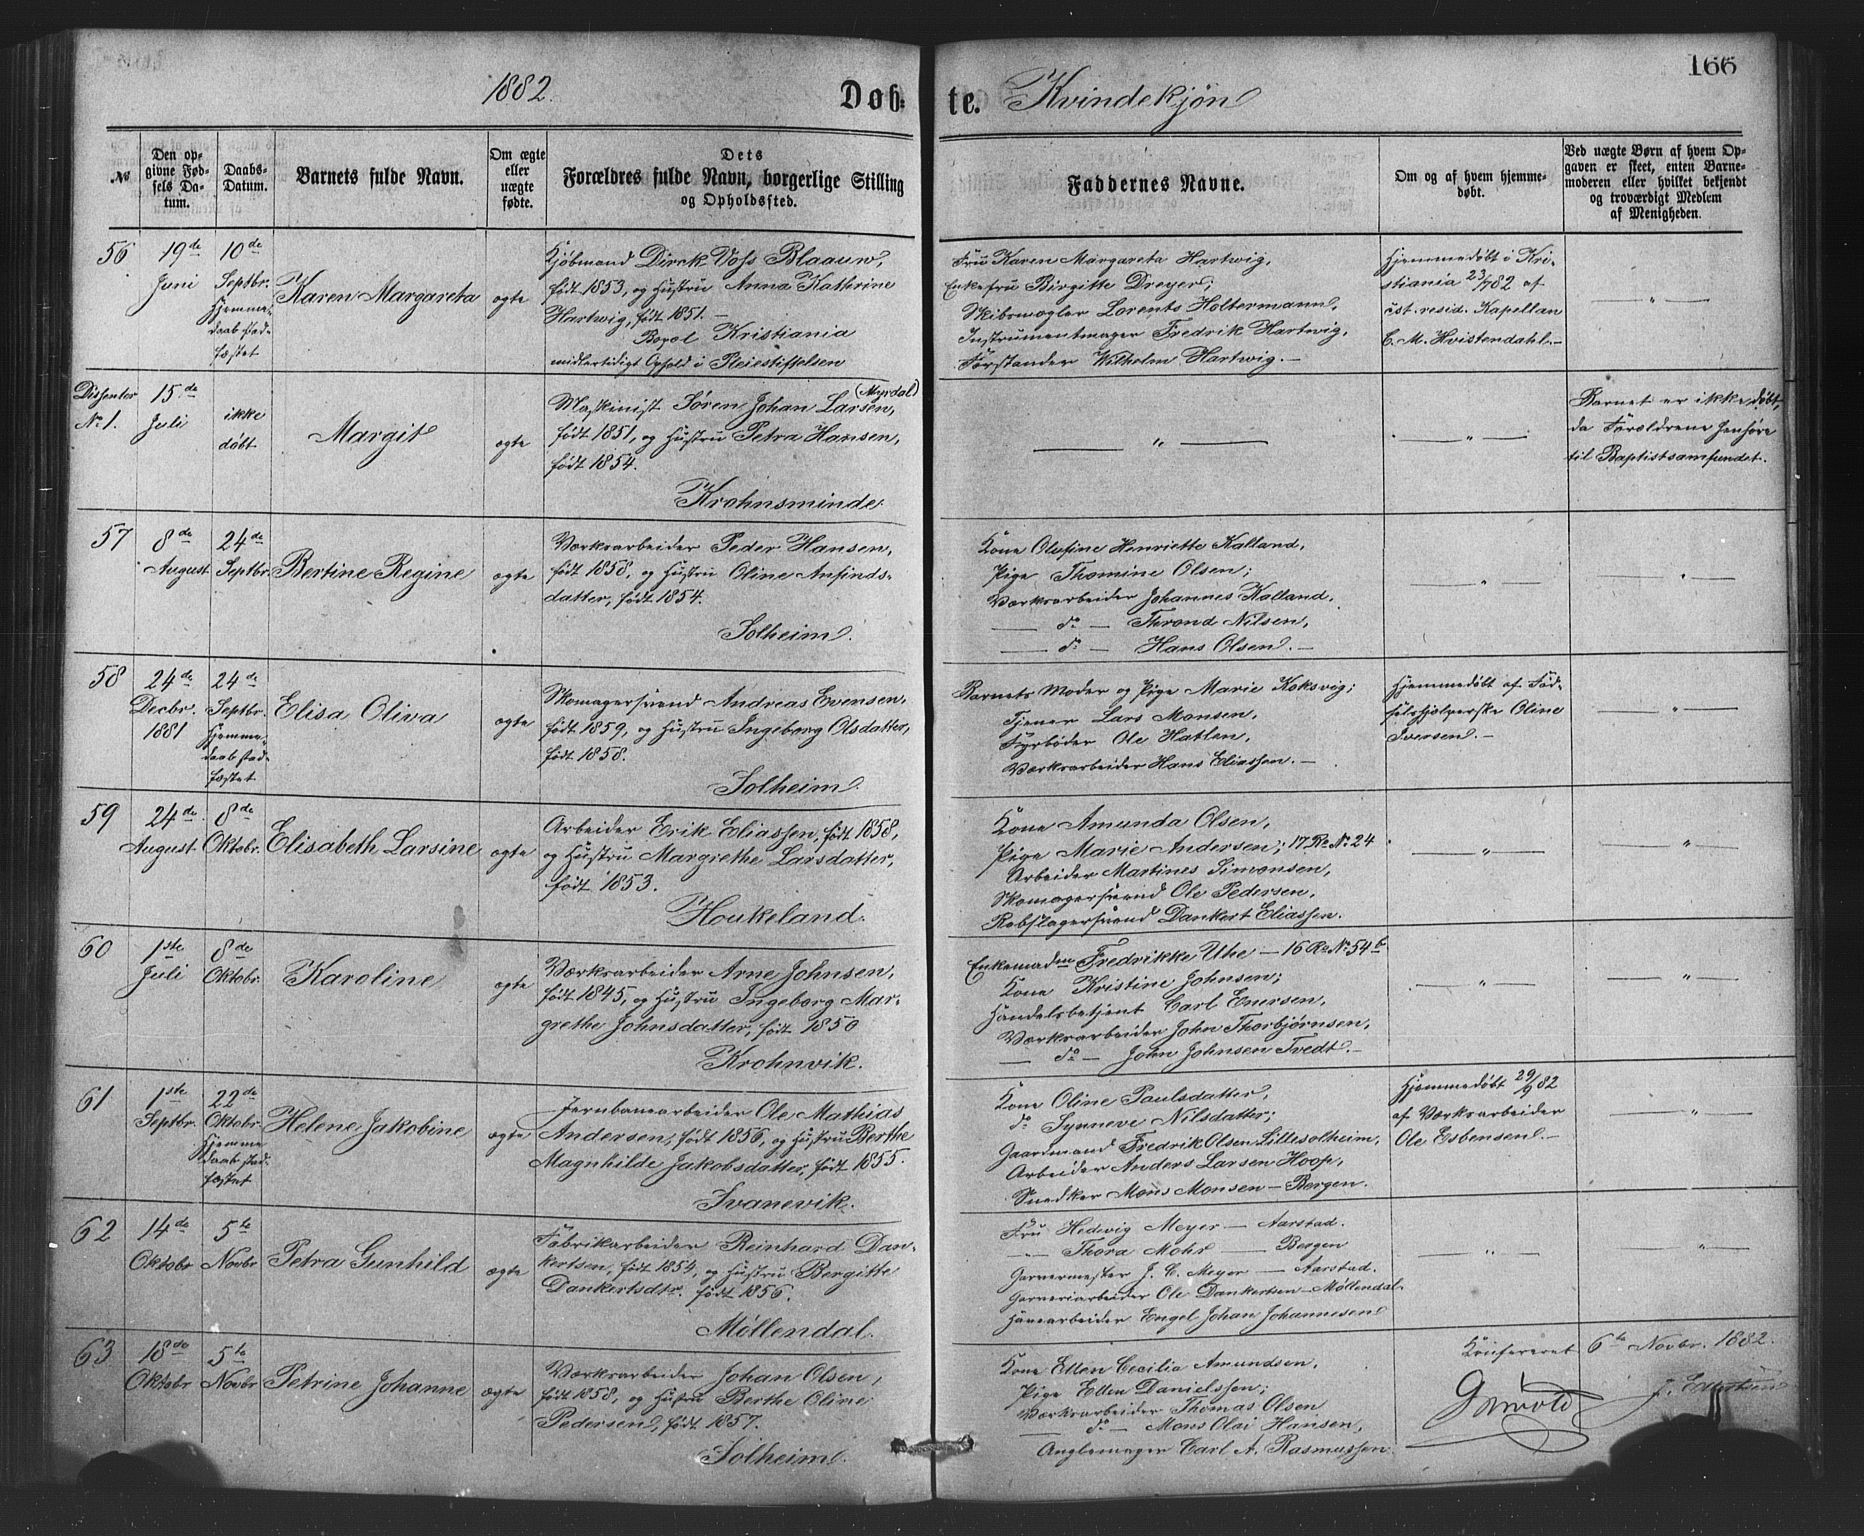 166
1882. Døb- te. Kvindekjøn
No
Den opgivne Fødsels Datum.
Daabs-Datum.
Barnets fulde Navn.
Om ægte eller uægte fødte.
Dets Forældres fulde Navn, borgerlige Stilling og Opholdssted.
Faddernes Navne.
Om og af hvem hjemmedøbt.
Ved uægte Børn af hvem Opgaven er skeet, enten Barnemoderen eller hvilket bekjendt og troværdigt Medlem af Menigheden.
56
19de Juni
10de Septbr. Hjemmedaab stadfæstet
Karen Margareta
ægte
Kjøbmand Dirck Voss Blaauw,
født 1853, og Hustru Anna Kathrine
Hartwig, født 1851. —
Bopæl Kristiania
midlertidigt Ophold i Pleiestiftelsen
Fru Karen Margareta Hartwig,
Enkefru Birgitte Dreyer;
Skibsmægler Lorents Holtermann,
Instrumentmager Fredrik Hartwig,
Forstander Wilhelm Hartwig. —
Hjemmedøbt i Kri-
stiania 23/7 82 af
cst. resid. Kapellan
C. M. Hvistendahl. —
— " —
Dissenter No 1.
15de Juli
ikke døbt
Margit
ægte
(Myrdal)
Maskinist Søren Johan Larsen,
født 1851, og Hustru Petra Hansen,
født 1854.
Krohnsminde.
— " —
— " —
Barnet er ikke døbt,
da Forældrene henhøre
til Baptistsamfundet.
57
8de August
24de Septbr.
Bertine Regine
ægte
Værksarbeider Peder Hansen,
født 1858, og Hustru Oline Anfinds-
datter, født 1854.
Solheim.
Kone Olufine Henriette Kalland,
Pige Thomine Olsen;
Værksarbeider Johannes Kalland,
— do — Thrond Nilsen,
— do — Hans Olsen. —
— " —
— " —
58
24de Decbr. 1881
24de Septbr. Hjemmedaab stadfæstet
Elisa Oliva
ægte
Skomagersvend Andreas Evensen,
født 1859, og Hustru Ingeborg Olsdatter,
født 1858.
Solheim.
Barnets Moder og Pige Marie Koksvig;
Tjener Lars Monsen,
Fyrbøder Ole Hatlen,
Værksarbeider Hans Eliassen. —
Hjemmedøbt af Fød-
selshjælperske Oline
Iversen. —
— " —
59
24de August
8de Oktobr.
Elisabeth Larsine
ægte
Arbeider Erik Eliassen, født 1858,
og Hustru Margrethe Larsdatter,
født 1853.
Houkeland.
Kone Amunda Olsen,
Pige Marie Andersen; 17 Ro No 24
Arbeider Martines Simonsen,
Skomagersvend Ole Pedersen,
Rebslagersvend Dankert Eliassen.
— " —
— " —
60
1ste Juli
8de Oktobr.
Karoline
ægte
Værksarbeider Arne Johnsen,
født 1845, og Hustru Ingeborg Mar-
grethe Johnsdatter, født 1850
Krohnvik.
Enkemadm Fredrikke Uhe — 16 Ro No 54 b
Kone Kristine Johnsen;
Handelsbetjent Carl Enersen,
Værksarbeider John Thorbjørnsen,
— do — John Johnsen Tvedt. —
— " —
— " —
61
1ste Septbr.
22de Oktobr. Hjemmedaab stadfæstet
Helene Jakobine
ægte
Jernbanearbeider Ole Mathias
Andersen, født 1856, og Hustru Berthe
Magnhilde Jakobsdatter, født 1855.
Svanevik.
Kone Oline Paulsdatter,
do Synneve Nilsdatter;
Gaardmand Fredrik Olsen Lillesolheim,
Arbeider Anders Larsen Hoop,
Snedker Mons Monsen — Bergen.
Hjemmedøbt 29/9 82
af Værksarbeider
Ole Esbensen. —
— " —
62
14de Oktobr
5te Novbr
Petra Gunhild
ægte
Fabrikarbeider Reinhard Dan-
kertsen, født 1854, og Hustru Bergitte
Dankertsdtr. født 1856.
Møllendal.
Fru Hedevig Meyer — Aarstad.
— " — Thora Mohr — Bergen
Garvermester J. C. Meyer — Aarstad.
Garveriarbeider Ole Dankertsen — Møllendal
Havearbeider Engel Johan Johannesen
— " —
— " —
63
18de Oktobr
5te Novbr
Petrine Johanne
ægte
Værksarbeider Johan Olsen,
født 1858, og Hustru Berthe Oline
Pedersen, født 1857.
Solheim.
Kone Ellen Cecilia Amundsen,
Pige Ellen Danielssen;
Værksarbeider Thomas Olsen
— do — Mons Olai Hansen,
Anglemager Carl A. Rasmussen
Konfereret 6te Novbr. 1882.